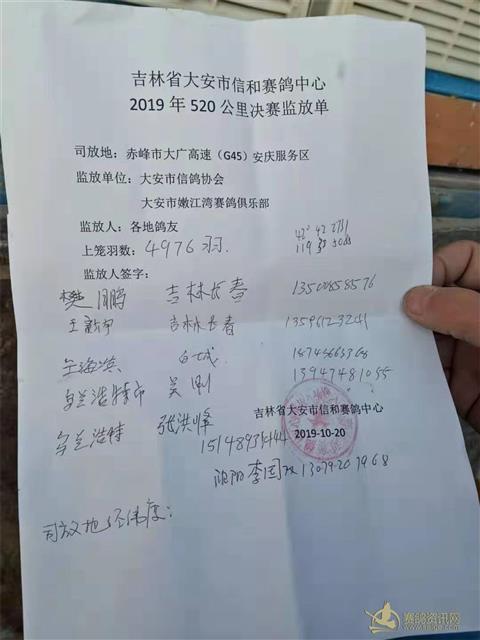 吉林省大安市信和赛鸽中心
2019 年 520 公里决赛监放单
司放地：赤峰市大广高速（G45）安庆服务区
监放单位：大安市信鸽协会
大安市嫩江湾赛鸽俱乐部
监放人：各地鸽友
上笼羽数：4976羽.
监放人签字：
樊 鹏 吉林长春 13500858576
王 吉林长春 13596123241
白城
乌兰浩特市 吴刚 13947481055
乌兰浩特 张洪峰
吉林省大安市信和赛鸽中心
2019-10-20
李国 13079207968
司放地经纬度：
赛鸽资讯网